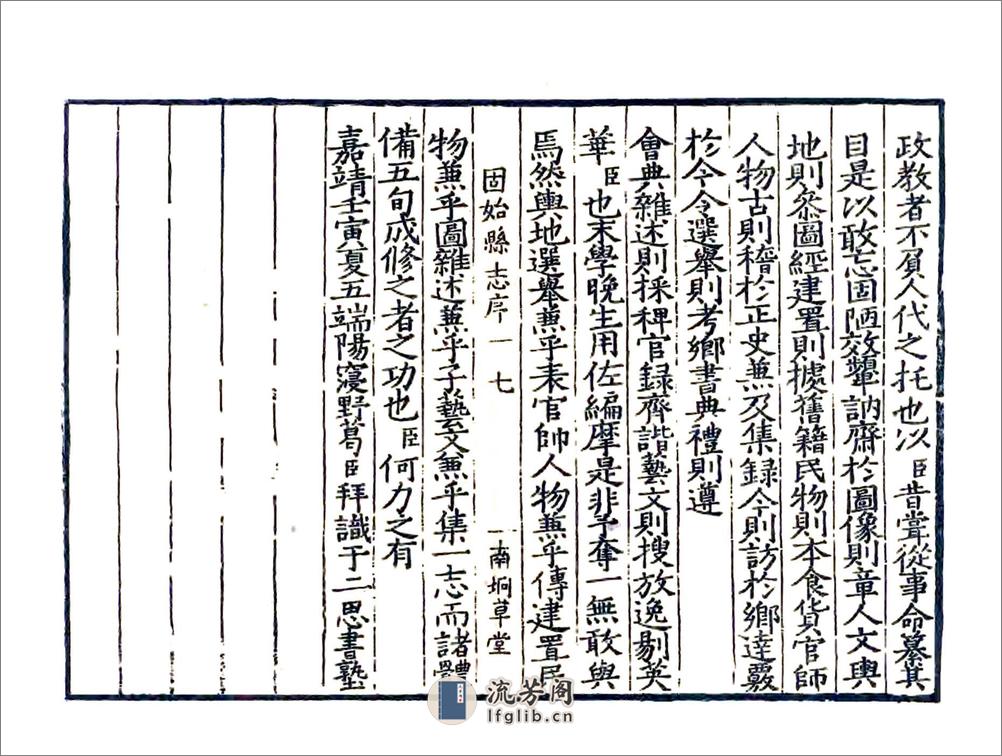 政教者不負人代之托也以臣昔嘗從事命纂其
目是以敢忘固陋效顰訥齋於圖像則章人文輿
地則叅圖經建置則據舊籍民物則本食貨官師
人物古則稽於正史蕪及集録今則訪於鄉達覈
於今令選舉則考鄉書典禮則遵
會典雜述則採稗官録齊諧藝文則搜放逸剔英
華臣也末學晚生用佐編摩是非予奪一無敢與
焉然輿地選舉蕪乎表官師人物蕪乎傳建置民
固始縣志序一 七 南坰草堂
物蕪乎圖雜述蕪乎子藝文蕪乎集一志而諸體
備五旬成修之者之功也臣何力之有
嘉靖壬寅夏五端陽寖野葛臣拜識于二思書塾
流芳阁
lfglib.cn